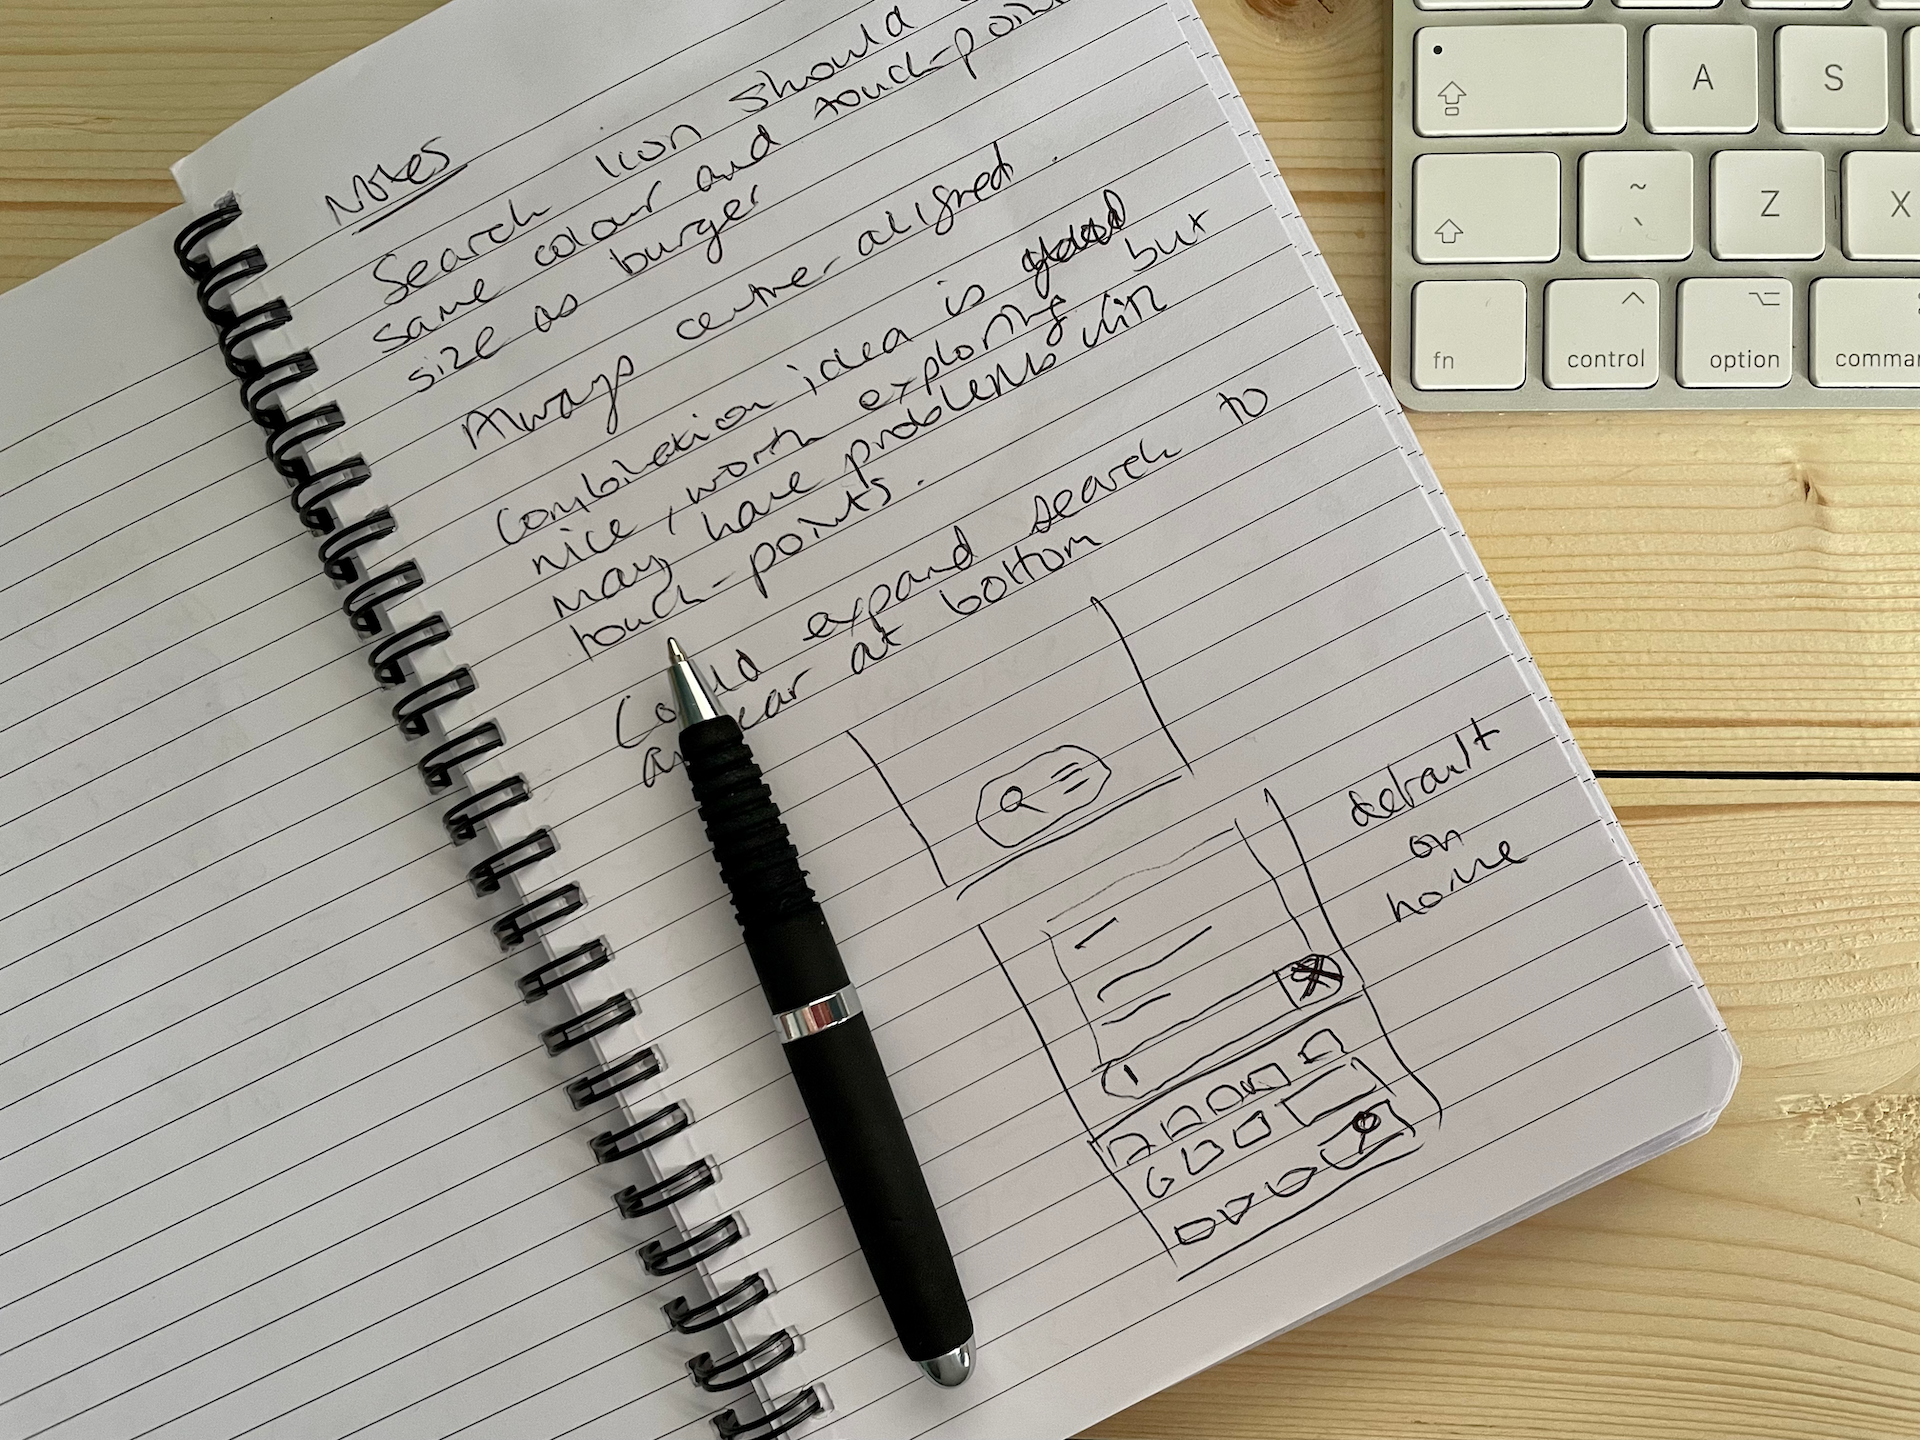 Notes
Search icon should
same colour and touch-point
size as burger
Always centre-aligned.
Combination idea is
nice, worth exploring but
may have problems with
touch-points.
Could expand search to
appear at bottom
default
on
home
A
S
~
`
Z
X
fn
control
option